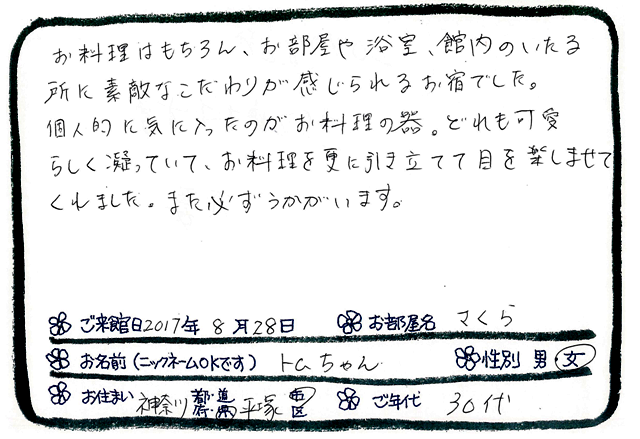 お料理はもちろん、お部屋や浴室、館内のいたる
所に素敵なこだわりが感じられるお宿でした。
個人的に気に入ったのがお料理の器。どれも可愛
らしく凝っていて、お料理を更に引き立てて目を楽しませて
くれました。また必ずうかがいます。
ご来館日2017年 8月28日 お部屋名 さくら
お名前(ニックネームOKです) トムちゃん 性別 男・女
お住まい 神奈川 都道府県 平塚 市区 ご年代 30代